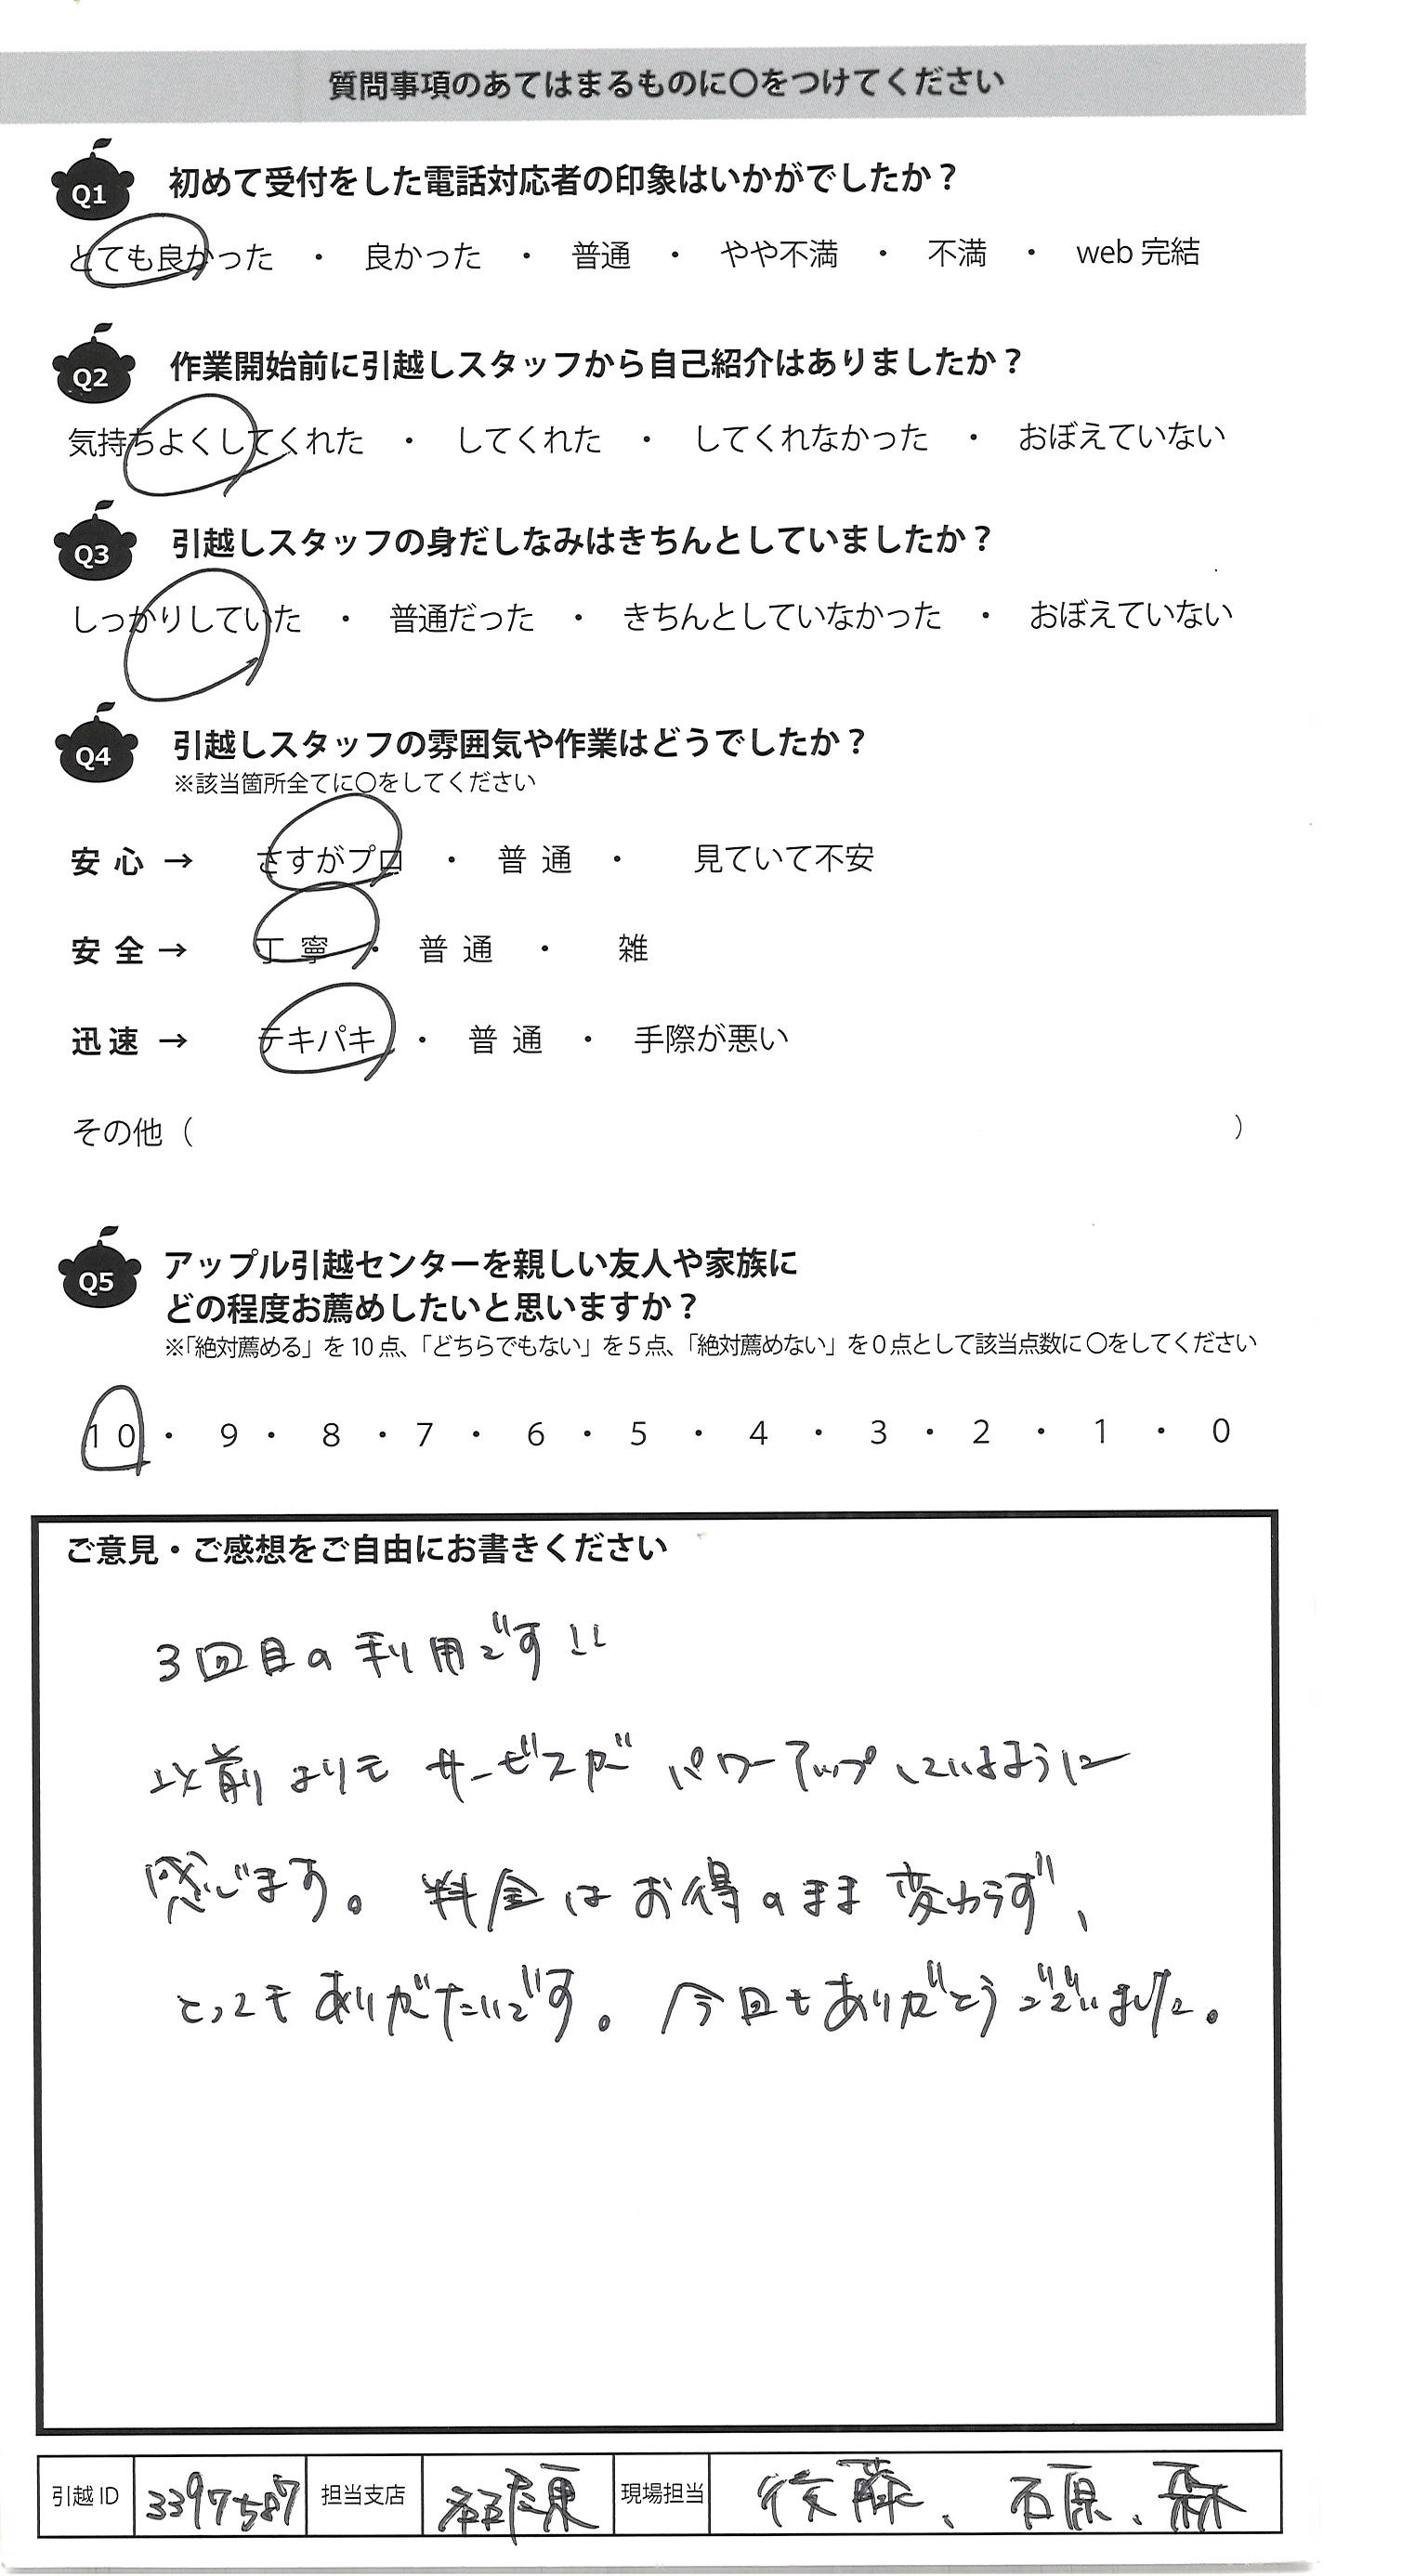 質問事項のあてはまるものに〇をつけてください
Q1 初めて受付をした電話対応者の印象はいかがでしたか？
とても良かった ・ 良かった ・ 普通 ・ やや不満 ・ 不満 ・ web 完結
Q2 作業開始前に引越しスタッフから自己紹介はありましたか？
気持ちよくしてくれた ・ してくれた ・ してくれなかった ・ おぼえていない
Q3 引越しスタッフの身だしなみはきちんとしていましたか？
しっかりしていた ・ 普通だった ・ きちんとしていなかった ・ おぼえていない
Q4 引越しスタッフの雰囲気や作業はどうでしたか？
※該当箇所全てに〇をしてください
安心 → さすがプロ ・ 普通 ・ 見ていて不安
安全 → 丁寧 ・ 普通 ・ 雑
迅速 → テキパキ ・ 普通 ・ 手際が悪い
その他（ ）
Q5 アップル引越センターを親しい友人や家族に
どの程度お薦めしたいと思いますか？
※「絶対薦める」を10点、「どちらでもない」を5点、「絶対薦めない」を0点として該当点数に〇をしてください
10 ・ 9 ・ 8 ・ 7 ・ 6 ・ 5 ・ 4 ・ 3 ・ 2 ・ 1 ・ 0
ご意見・ご感想をご自由にお書きください
3回目の利用です!!
以前よりも サービスが パワーアップしているように
感じます。 料金はお得のまま変わらず、
とってもありがたいです。 今回もありがとうございました。
引越ID 3397587 担当支店 現場担当 後藤、石原、森